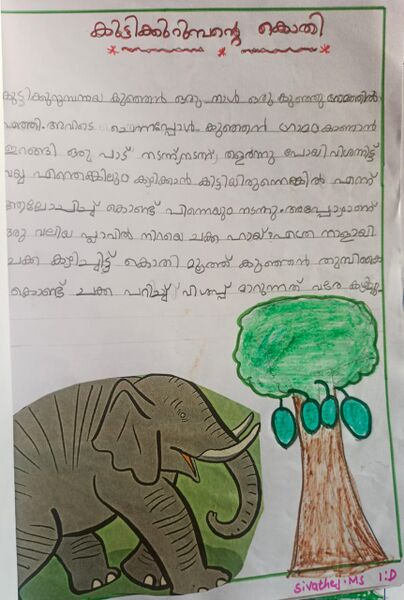 കുട്ടിക്കുറുമ്പന്റെ കൊതി
കുട്ടിക്കുറുമ്പനായ കുഞ്ഞൻ ഒരു നാൾ ഒരു കുഞ്ഞു ഗ്രാമത്തിൽ
എത്തി. അവിടെ ചെന്നപ്പോൾ കുഞ്ഞൻ ഗ്രാമം കാണാൻ
ഇറങ്ങി ഒരു പാട് നടന്നുനടന്നു തളർന്നു പോയി വിശന്നിട്ട്
വല്ല എന്തെങ്കിലും കഴിക്കാൻ കിട്ടിയിരുന്നെങ്കിൽ എന്ന്
ആലോചിച്ച് കൊണ്ട് പിന്നെയും നടന്നു. അപ്പോഴാണ്
ഒരു വലിയ പ്ലാവിൽ നിറയെ ചക്ക ഹായ്! എത്ര നാളായി
ചക്ക കഴിച്ചിട്ട് കൊതി മൂത്ത് കുഞ്ഞൻ തുമ്പിക്കൈ
കൊണ്ട് ചക്ക പറിച്ച് വിശപ്പ് മാറുന്നത് വരെ കഴിച്ചു.
Sivathej.MS 1:D